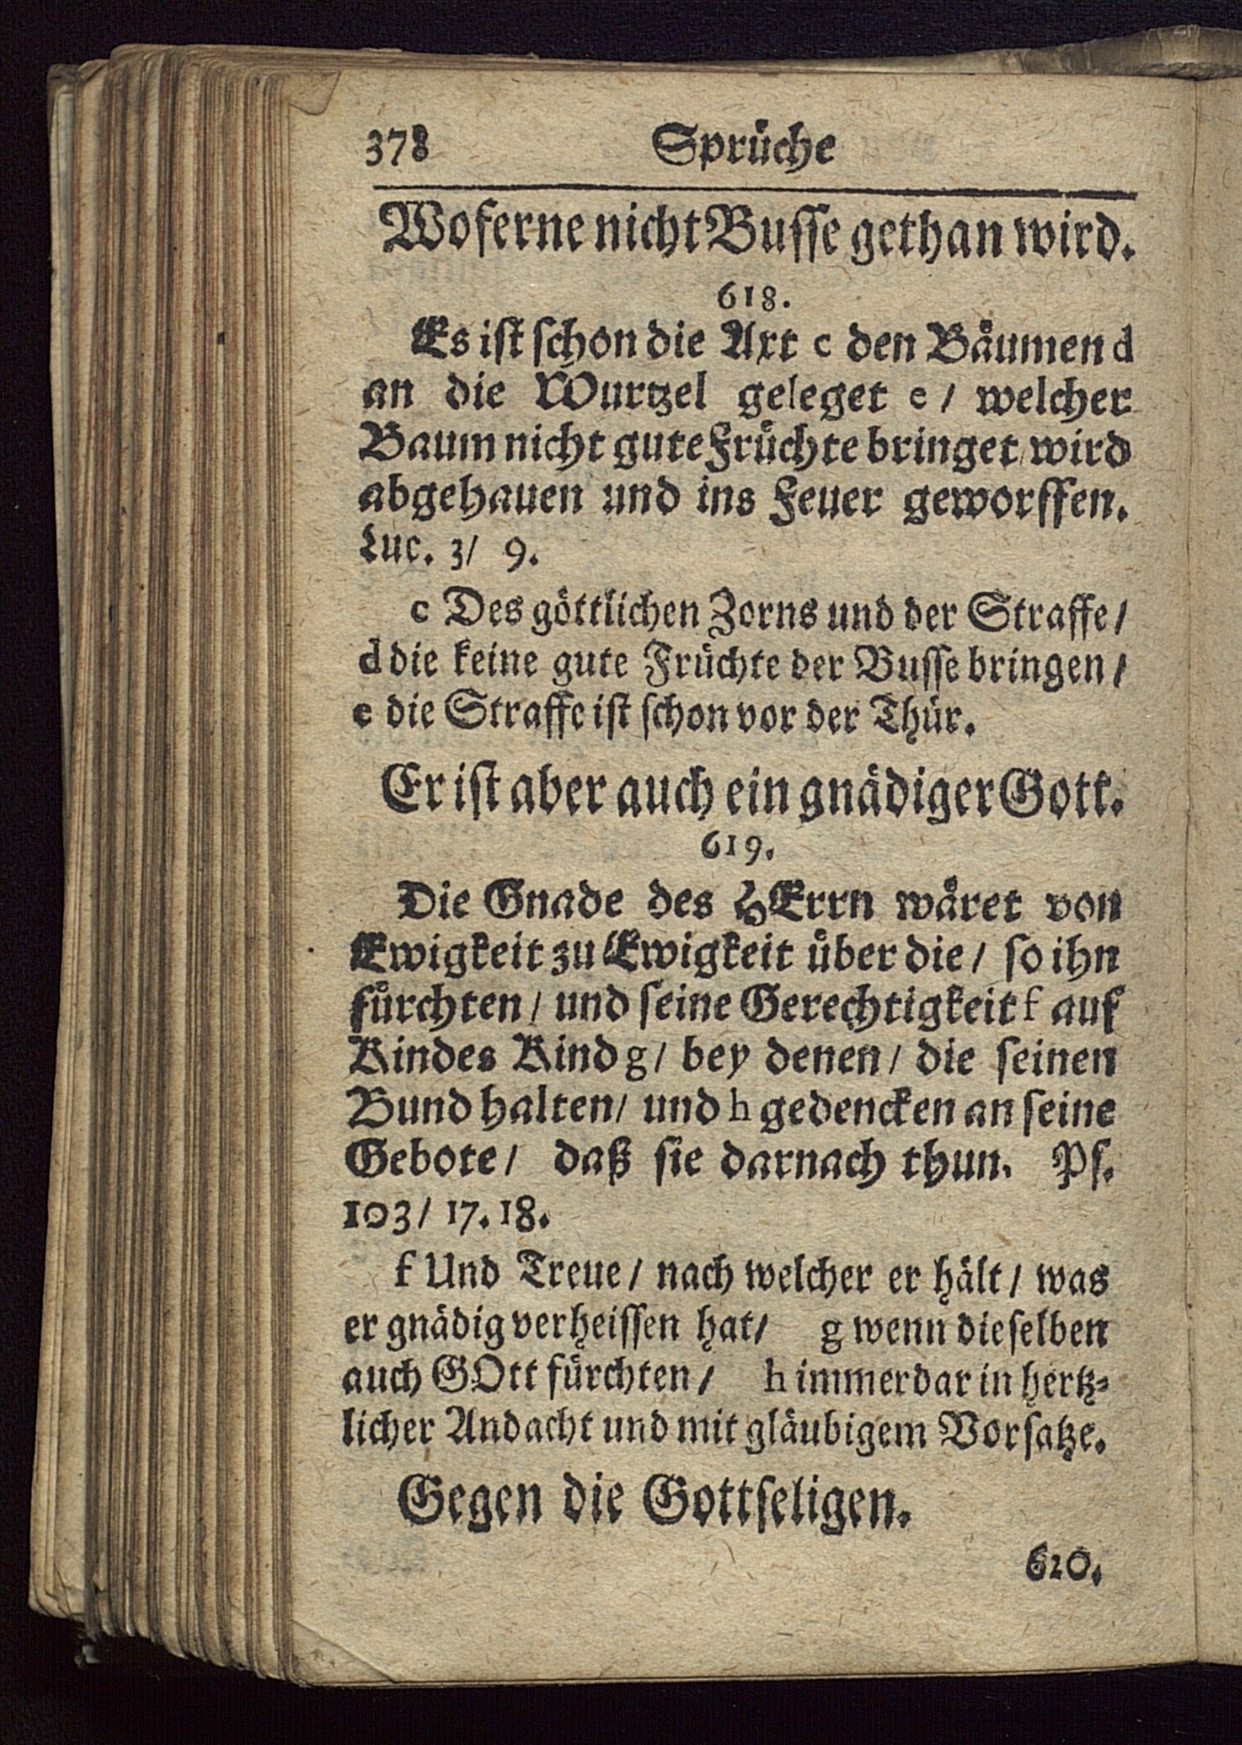 378 Sprüche
Woferne nicht Busse gethan wird.
618.
Es ist schon die Axt c den Bäumen d
an die Wurtzel geleget e / welcher
Baum nicht gute Früchte bringet / wird
abgehauen und ins Feuer geworffen.
Luc. 3/ 9.
c Des göttlichen Zorns und der Straffe /
d die keine gute Früchte der Busse bringen /
e die Straffe ist schon vor der Thür.
Er ist aber auch ein gnädiger Gott.
619.
Die Gnade des HErrn wäret von
Ewigkeit zu Ewigkeit über die / so ihn
fürchten / und seine Gerechtigkeit f auf
Kindes Kind g / bey denen / die seinen
Bund halten / und h gedencken an seine
Gebote / daß sie darnach thun. Ps.
103 / 17. 18.
f Und Treue / nach welcher er hält / was
er gnädig verheissen hat / g wenn dieselben
auch GOtt fürchten / h immerdar in hertz-
licher Andacht und mit gläubigem Vorsatze.
Gegen die Gottseligen.
620.